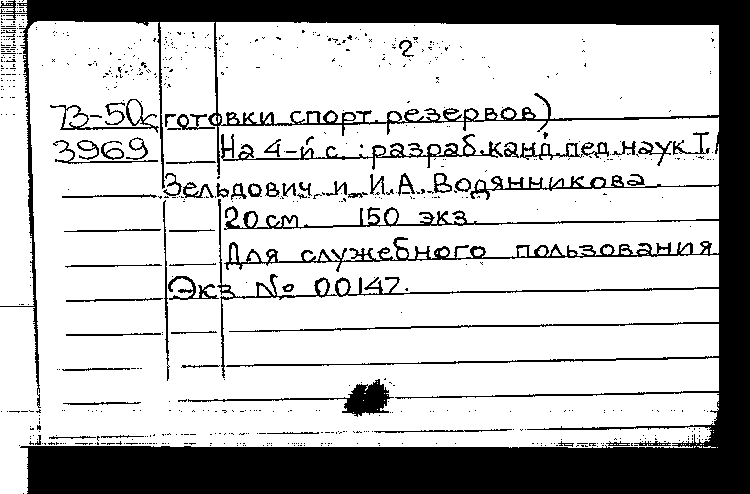 2
73-50с готовки спорт. резервов)
3969 На 4-й с. : разраб. канд. пед. наук Т.
Зельдович и И.А. Водянникова.
20 см. 150 экз.
Для служебного пользования
Экз № 00147.